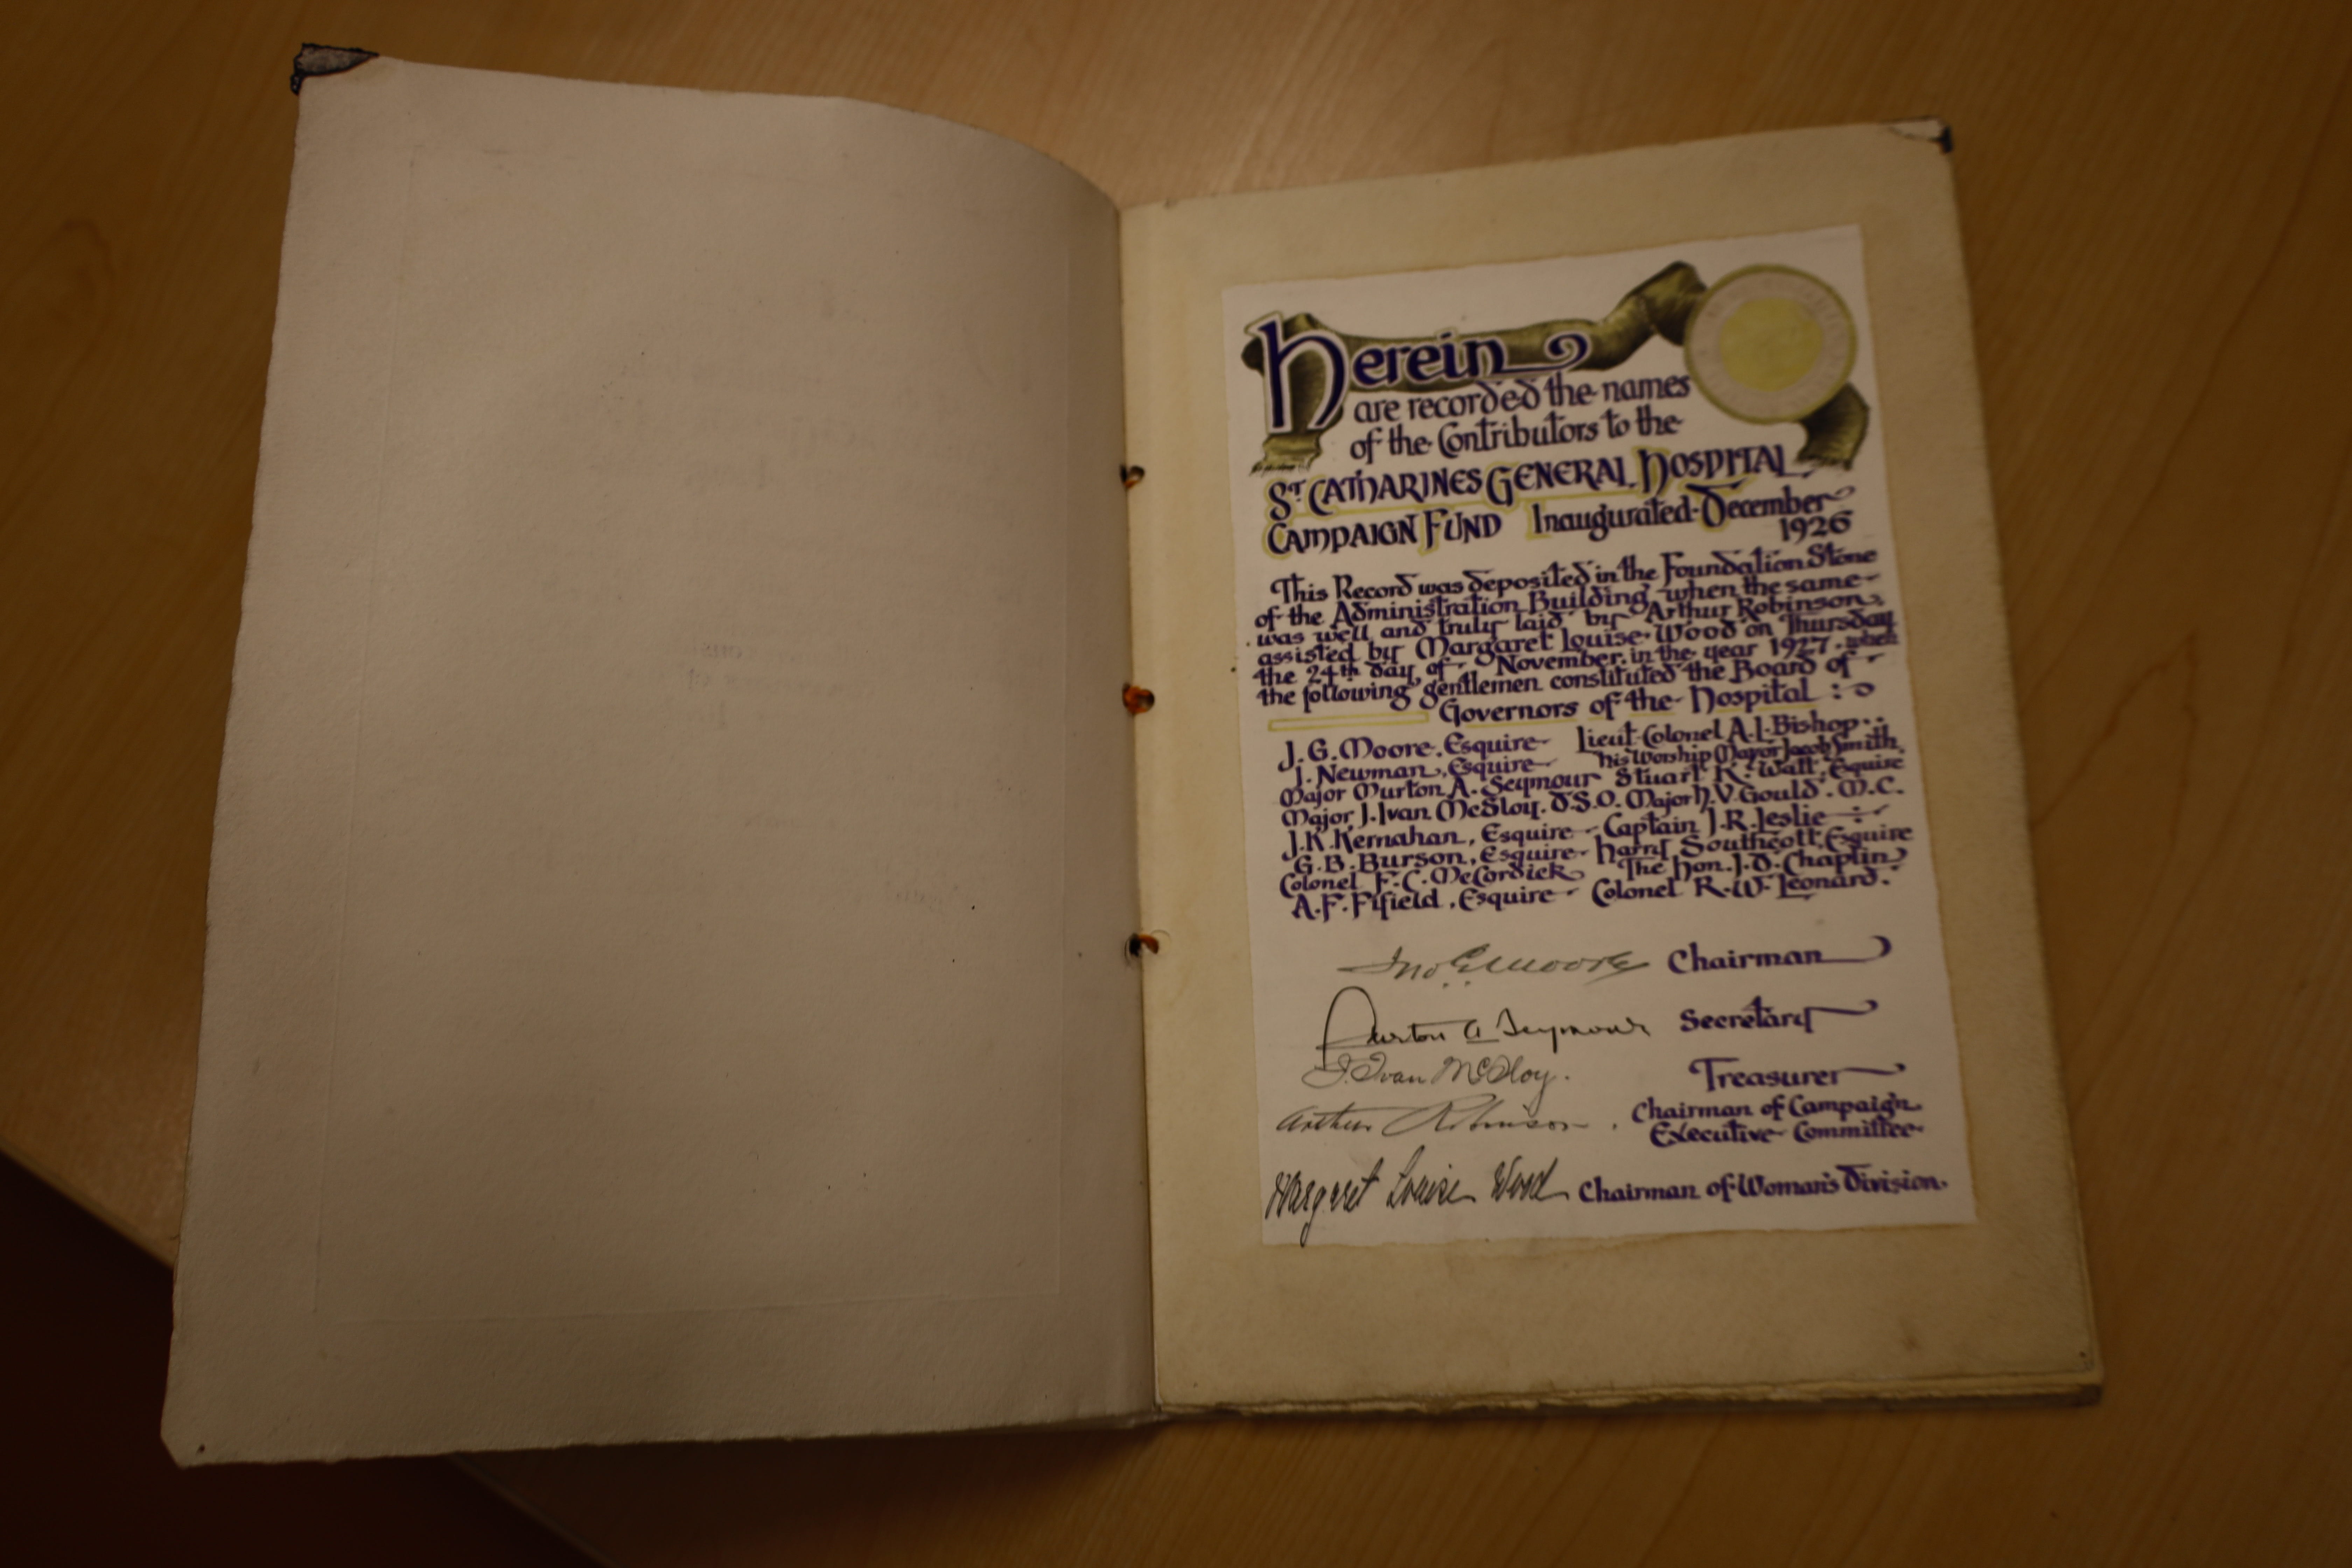 Herein
are recorded the names
of the Contributors to the
ST CATHARINES GENERAL HOSPITAL
CAMPAIGN FUND Inaugurated December
1926
This Record was deposited in the Foundation Stone
of the Administration Building when the same
was well and truly laid by Arthur Robinson,
assisted by Margaret Louise Wood on Thursday
the 24th day of November in the year 1927, when
the following gentlemen constituted the Board of
Governors of the Hospital :
J. G. Moore, Esquire Lieut. Colonel A. L. Bishop
J. Newman, Esquire his Worship Mayor Jacob Smith
Major Murton A. Seymour Stuart K. Watt, Esquire
Major J. Ivan McSloy. D.S.O. Major H. V. Gould. M.C.
J. K. Kernahan, Esquire Captain J. R. Leslie
G. B. Burson, Esquire Harry Southcott, Esquire
Colonel F. C. McCordick The Hon. J. D. Chaplin
A. F. Fifield, Esquire Colonel R. W. Leonard.
Jno G. Moore Chairman
Murton A Seymour Secretary
J. Ivan McSloy. Treasurer
Arthur Robinson. Chairman of Campaign
Executive Committee
Margaret Louise Wood Chairman of Woman's Division.